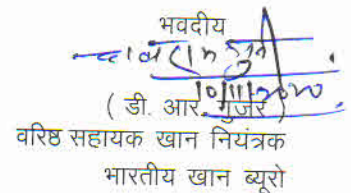 भवदीय
10/11/2020
( डी. आर. गुर्जर )
वरिष्ठ सहायक खान नियंत्रक
भारतीय खान ब्यूरो